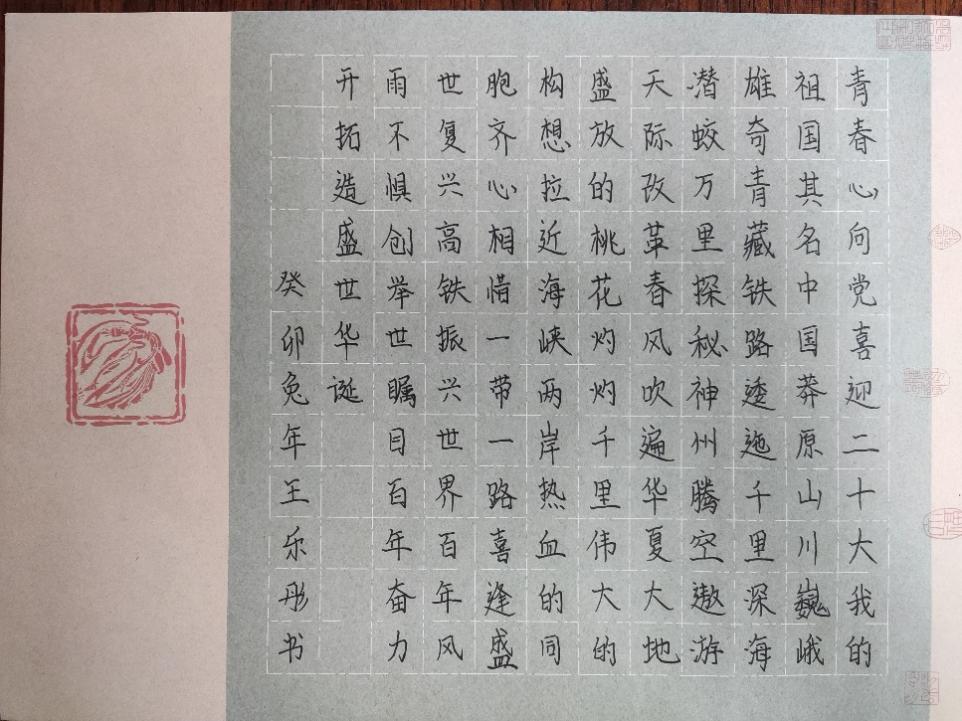 青春心向党喜迎二十大我的
祖国其名中国莽原山川巍峨
雄奇青藏铁路逶迤千里深海
潜蛟万里探秘神州腾空遨游
天际改革春风吹遍华夏大地
盛放的桃花灼灼千里伟大的
构想拉近海峡两岸热血的同
胞齐心相惜一带一路喜逢盛
世复兴高铁振兴世界百年风
雨不惧创举世瞩目百年奋力
开拓造盛世华诞
癸卯兔年王乐彤书